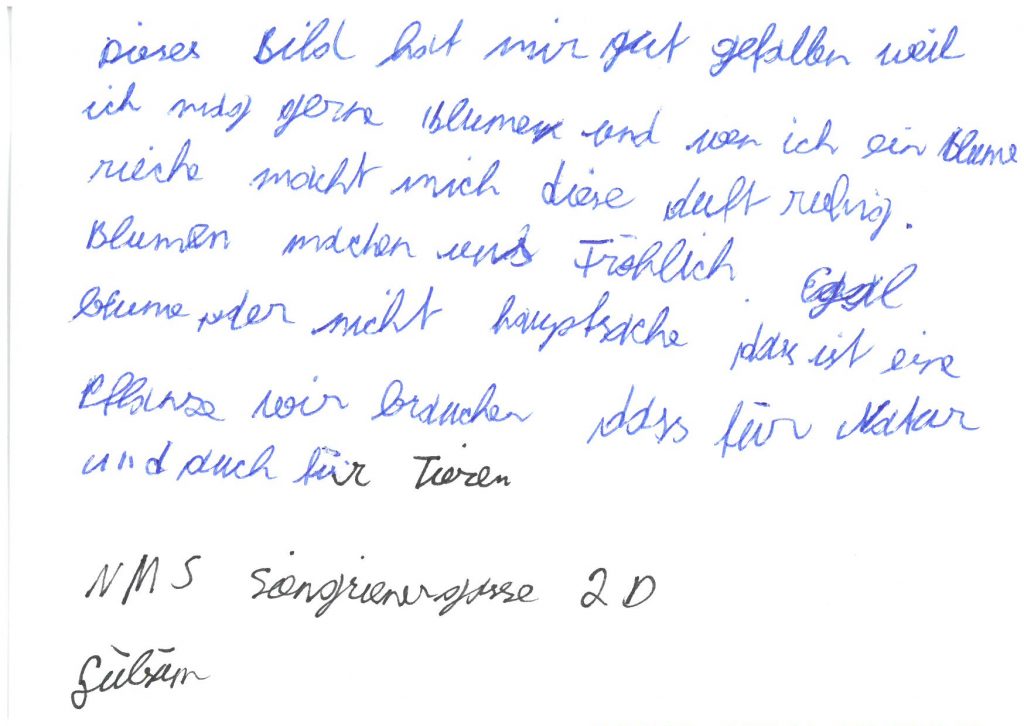 Dieses Bild hat mir gut gefallen weil
ich mag gerne Blumen und wen ich ein Blume
rieche macht mich diese duft ruhig.
Blumen machen uns Fröhlich. Egal
blume oder nicht hauptsache dass ist eine
Pflanze wir brauchen dass für Natur
und auch für Tieren
NMS 2D